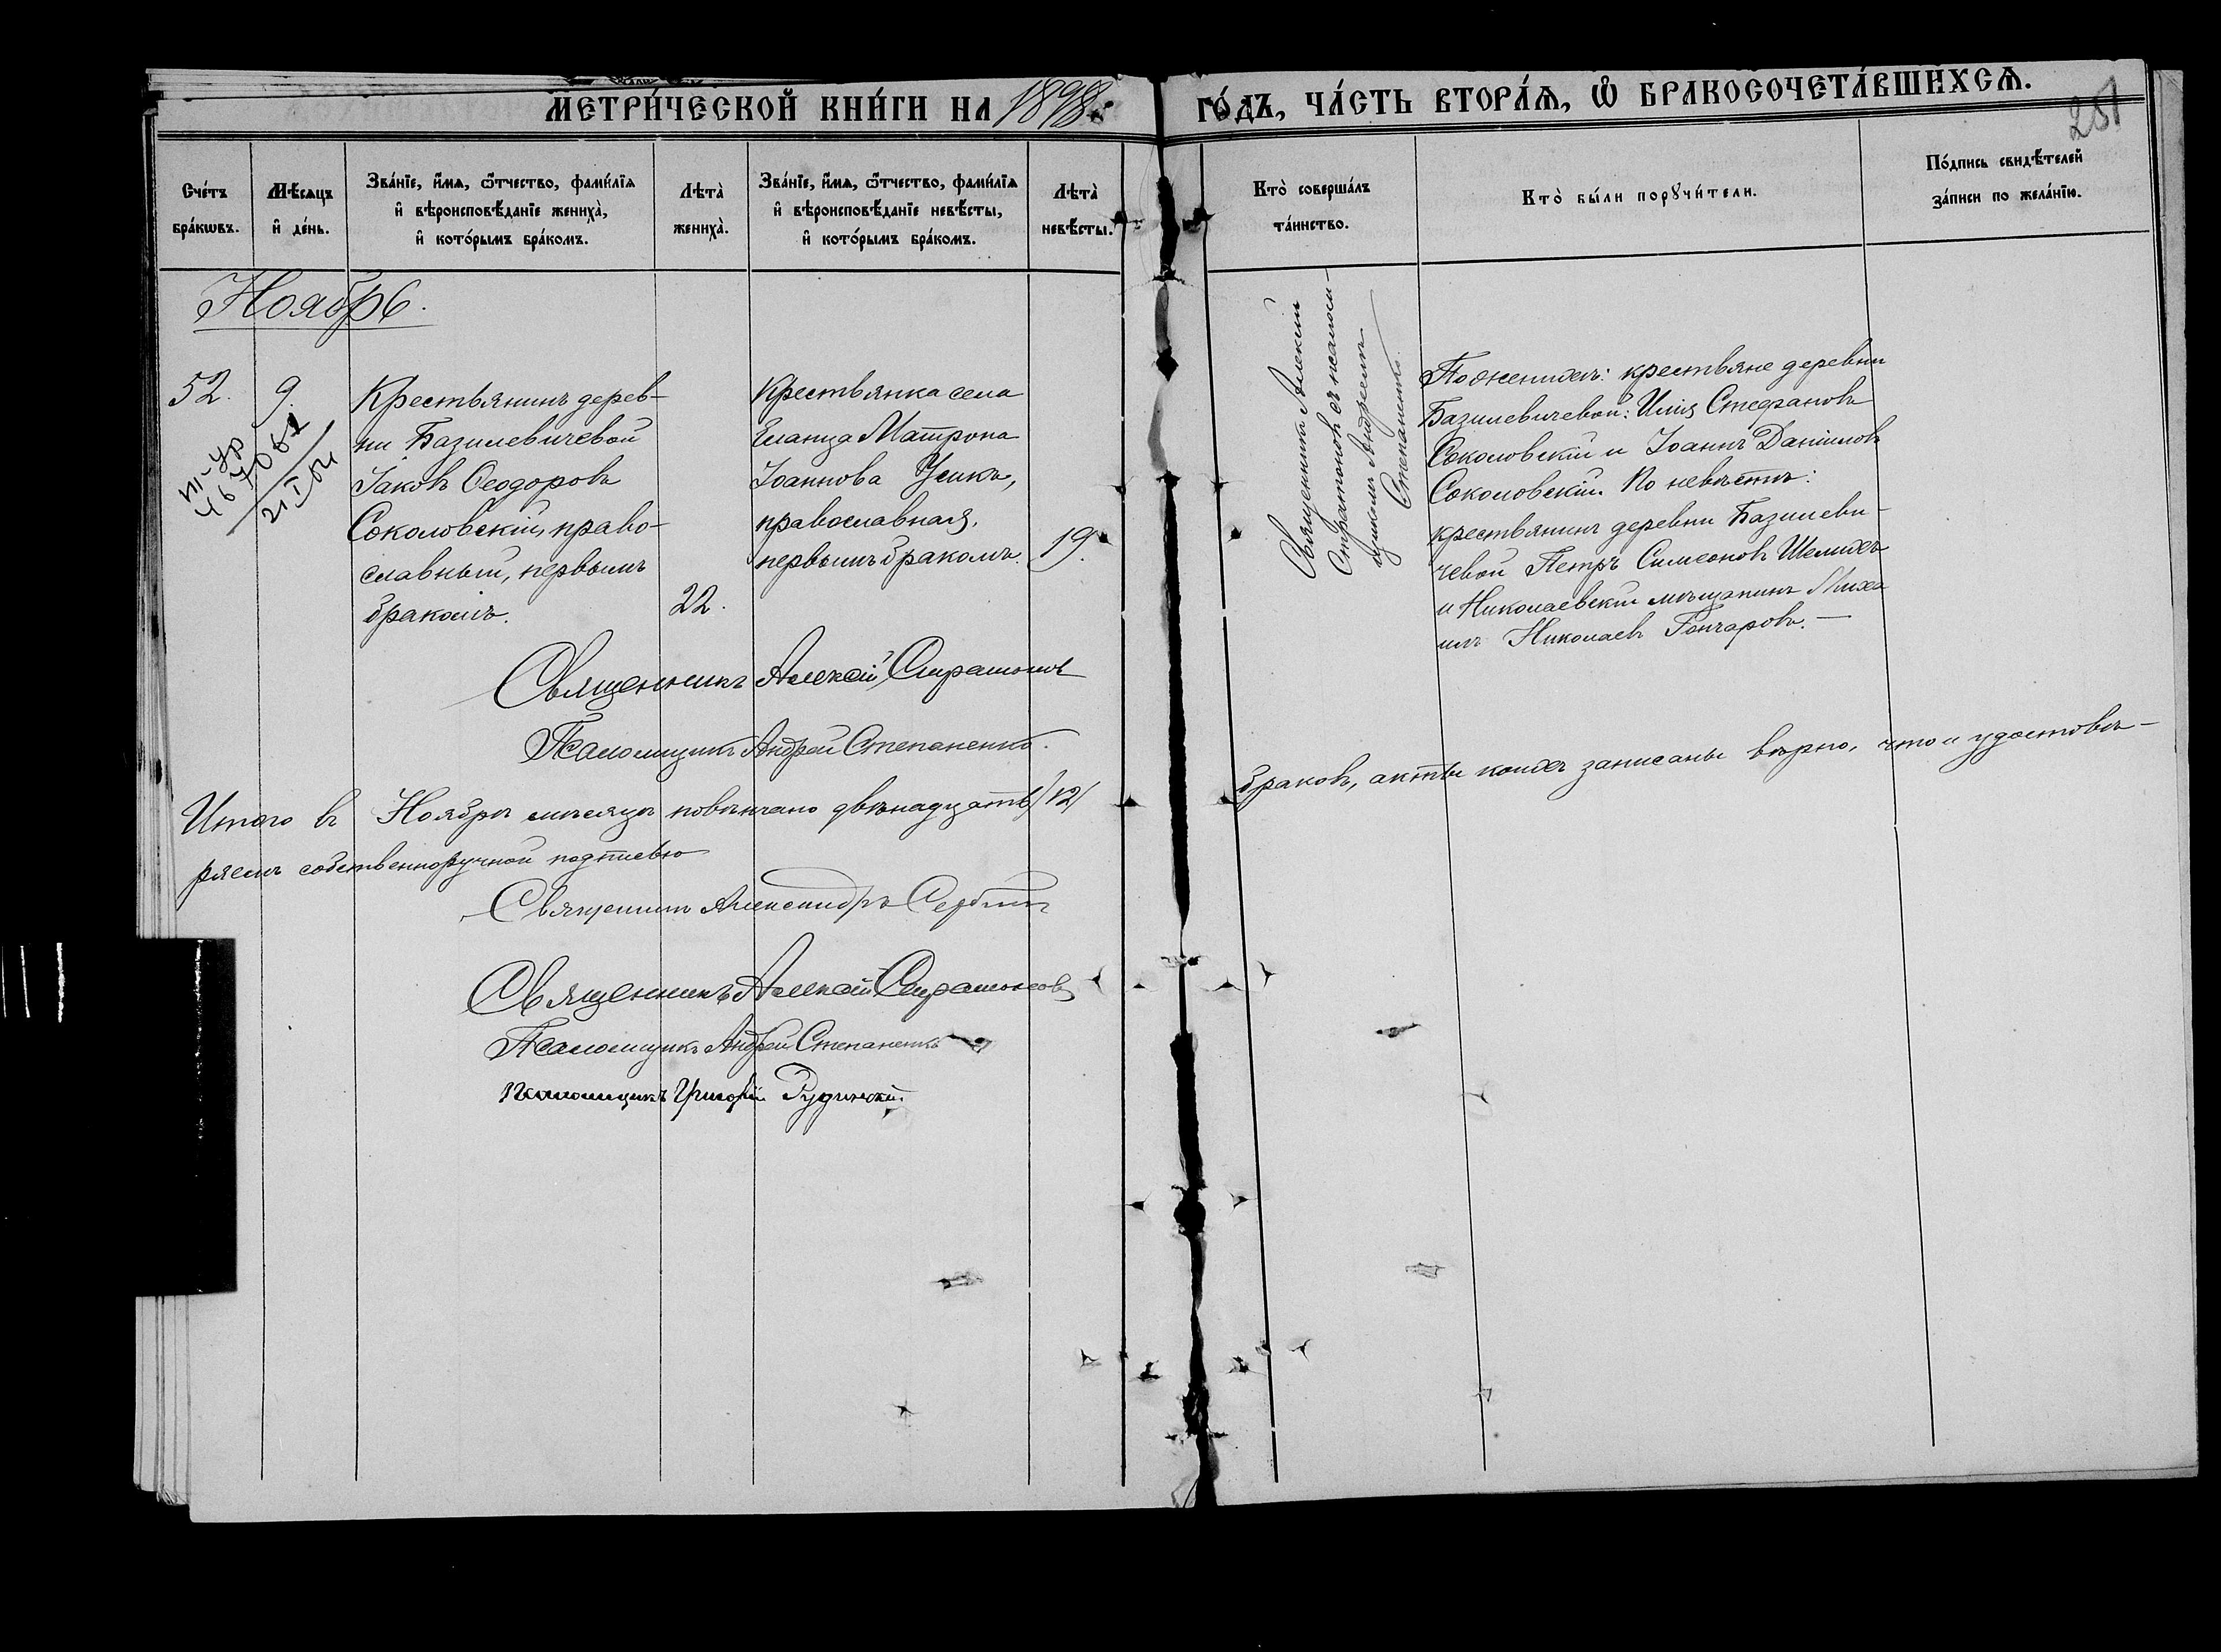 МЕТРИ́ЧЕСКОЙ КНИ́ГИ НА 1898
ГО́ДЪ, ЧА́СТЬ ВТОРА́Ѧ, Ѽ БРАКОСОЧЕТА́ВШИХСѦ.
251
Сче́тъ бра́кѡвъ.
Мѣ́сѧцъ и҆ де́нь.
Зва́нїе, и҆́мѧ, ѻ҆́тчество, фами́лїѧ
и҆ вѣроисповѣ́данїе жениха̀,
и҆ кото́рымъ бра́комъ.
Лѣта̀ жениха̀.
Зва́нїе, и҆́мѧ, ѻ҆́тчество, фами́лїѧ
и҆ вѣроисповѣ́данїе невѣ́сты,
и҆ кото́рымъ бра́комъ.
Лѣта̀ невѣ́сты.
Кто̀ соверша́лъ та́инство.
Кто̀ бы́ли порꙋчи́тели.
По́дпись свидѣ́телей
за́писи по жела́нїю.
Ноябрь.
52.
9.
Крестьянинъ дерев-
ни Базилевичевой
Іаковъ Ѳеодоровъ
Соколовскій, право-
славный, первымъ
бракомъ.
22.
Крестьянка села
Еланца Матрона
Іоаннова Усикъ,
православная,
первымъ бракомъ.
19.
Священникъ Алексій
Стратоновъ съ псаломщи-
комъ Андреемъ
Степаненко.
По женихѣ: крестьяне деревни
Базилевичевой: Илія Стефановъ
Соколовскій и Іоаннъ Даніиловъ
Соколовскій. По невѣстѣ:
крестьянинъ деревни Базилеви-
чевой Петръ Симеоновъ
и Николаевскій мѣщанинъ Миха
илъ Николаевъ Гончаровъ.—
Священникъ Алексій Стратоновъ
Псаломщикъ Андрей Степаненко.
Итого въ Ноябрѣ мѣсяцѣ повѣнчано двѣнадцать /12/ браковъ, акты коихъ записаны вѣрно, что и удостовѣ-
ряемъ собственноручной подписью
Священникъ Александръ
Священникъ Алексій Стратоновъ
Псаломщикъ Андрей Степаненко
Псаломщикъ Григорій Рудинскій